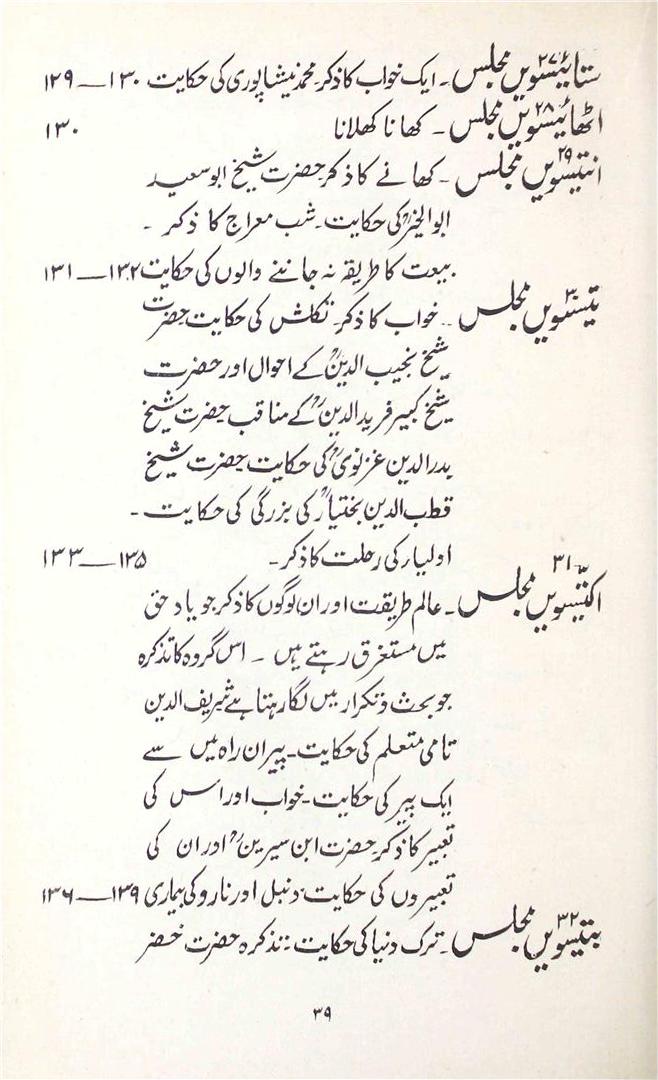 ستائیسویں ۲۷ مجلس۔ ایک خواب کا ذکر۔ محمد نیشاپوری کی حکایت ۱۳۰—۱۲۹
اٹھائیسویں ۲۸ مجلس۔ کھانا کھلانا ۱۳۰
انتیسویں ۲۹ مجلس۔ کھانے کا ذکر۔ حضرت شیخ ابوسعید
ابوالخیرؒ کی حکایت۔ شب معراج کا ذکر۔
بیعت کا طریقہ نہ جاننے والوں کی حکایت ۱۳۲—۱۳۱
تیسویں ۳۰ مجلس۔ خواب کا ذکر۔ تکلش کی حکایت۔ حضرت
شیخ نجیب الدینؒ کے احوال اور حضرت
شیخ کبیر فرید الدینؒ کے مناقب۔ حضرت شیخ
بدرالدین غزنویؒ کی حکایت۔ حضرت شیخ
قطب الدین بختیارؒ کی بزرگی کی حکایت۔
اولیار کی رحلت کا ذکر۔ ۱۳۵—۱۳۳
اکتیسویں ۳۱ مجلس۔ عالم طریقت اور ان لوگوں کا ذکر جو یاد حق
میں مستغرق رہتے ہیں۔ اس گروہ کا تذکرہ
جو بحث و تکرار میں لگا رہتا ہے۔ شریف الدین
نامی متعلم کی حکایت۔ پیران راہ میں سے
ایک پیر کی حکایت۔ خواب اور اس کی
تعبیر کا ذکر۔ حضرت ابن سیرینؒ اور ان کی
تعبیروں کی حکایت۔ دنبل اور نارو کی بیماری ۱۳۹—۱۳۶
بتیسویں ۳۲ مجلس۔ ترک دنیا کی حکایت۔ تذکرہ حضرت خضر
۳۹